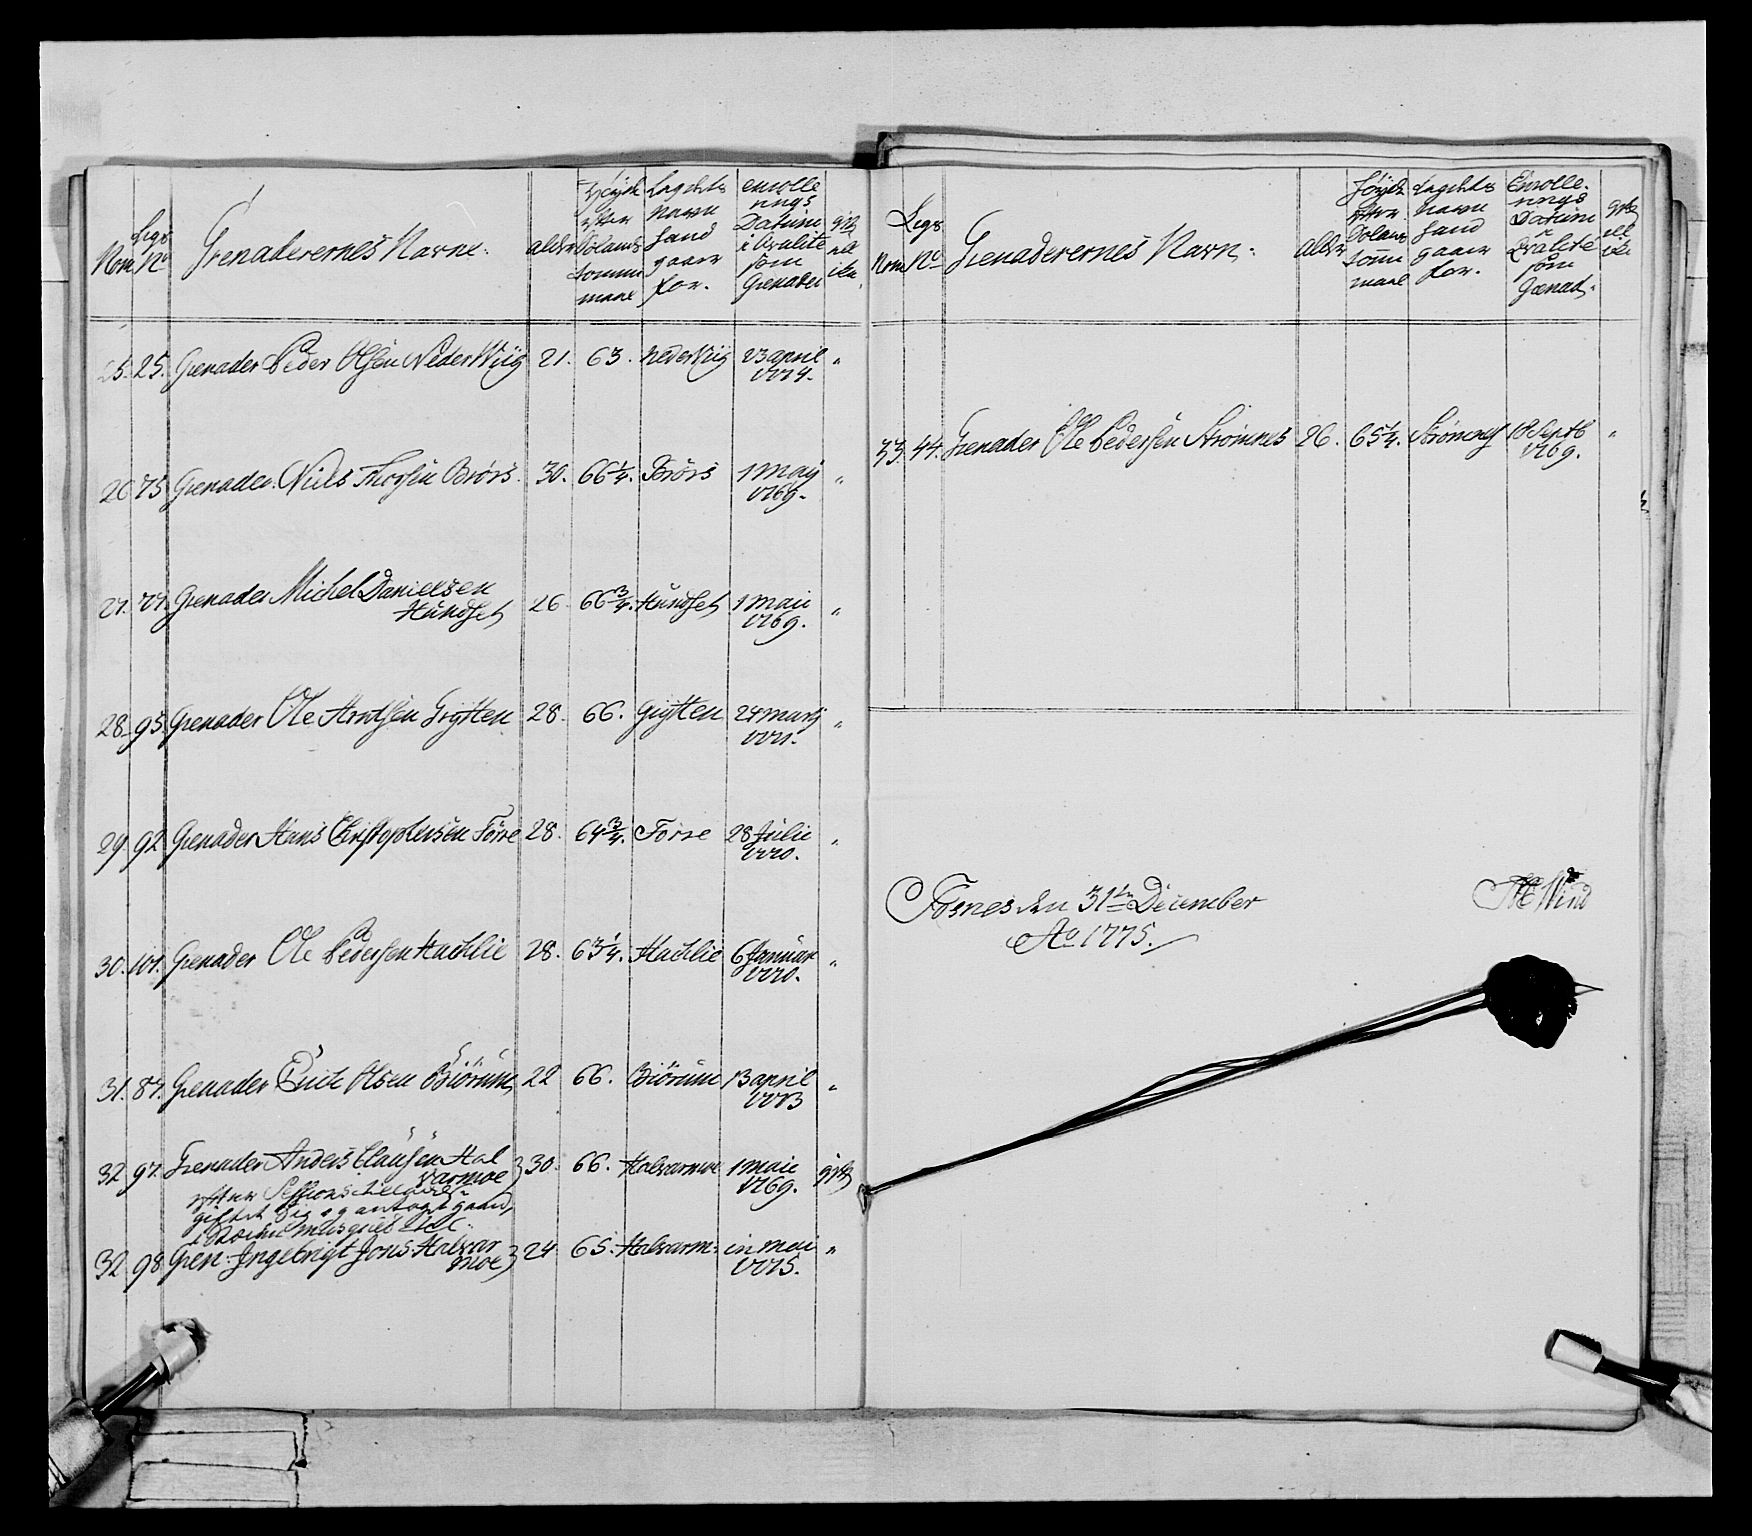 Nom
Legs No
Grenaderernes Navne.
alder
Høyde efter Solands tomme maal
Lagdets Navn hand gaaer for.
enrolle rings Datum i Qvalite som Grenader
gift ell ikke.
25. 25. Grenader Peder Olsen NederWiig 21. 63. NederViig 23 april 1774. "
26 75 Grenader Niels Thorsen Brørs. 30. 66 1/4. Brørs 1 Maij 1769. "
27. 77. Grenader Michel Danielsen
Hundset 26 66 3/4. Hundset 1 Maii 1769. "
28. 95. Grenader Ole Arntsen Grytten 28. 66. Grytten 24 Martij 1771. "
29. 92 Grenader Hans Christophersen Førre 28. 64 3/4. Førre 28 Julii 1770. "
30. 101. Grenader Ole Pedersen Hachlie 28. 63 1/4. Hachlie 6 Januar 1770. "
31. 87. Grenader Erich Olsen Biørum 22 66. Biørum 13 april 1773 "
32 97. Grenader Anders Clausen Hal
varmoe 30. 66. Halvarmoe 1 Maii 1769. gift
efter Sessions
giftet sig og antagt gaaer
32 98 Gren: Ingebrigt Jons: Halvar
moe 24 65. Halvarm: in Maii 1775. "
Nom
Legs No
Grenaderernes Navn.
alder
Høyde efter Solands tomme maal
Lagdets Navn hand gaaer for.
Enrolle rings Datum i Qvalite som Grenad.
gift ell ike
33. 44. Grenader Ole Pedersen Strømnes 26. 65 1/4. Strømnes 18 Septb 1769. "
Fosnes den 31te December
Ao 1775.
Wind